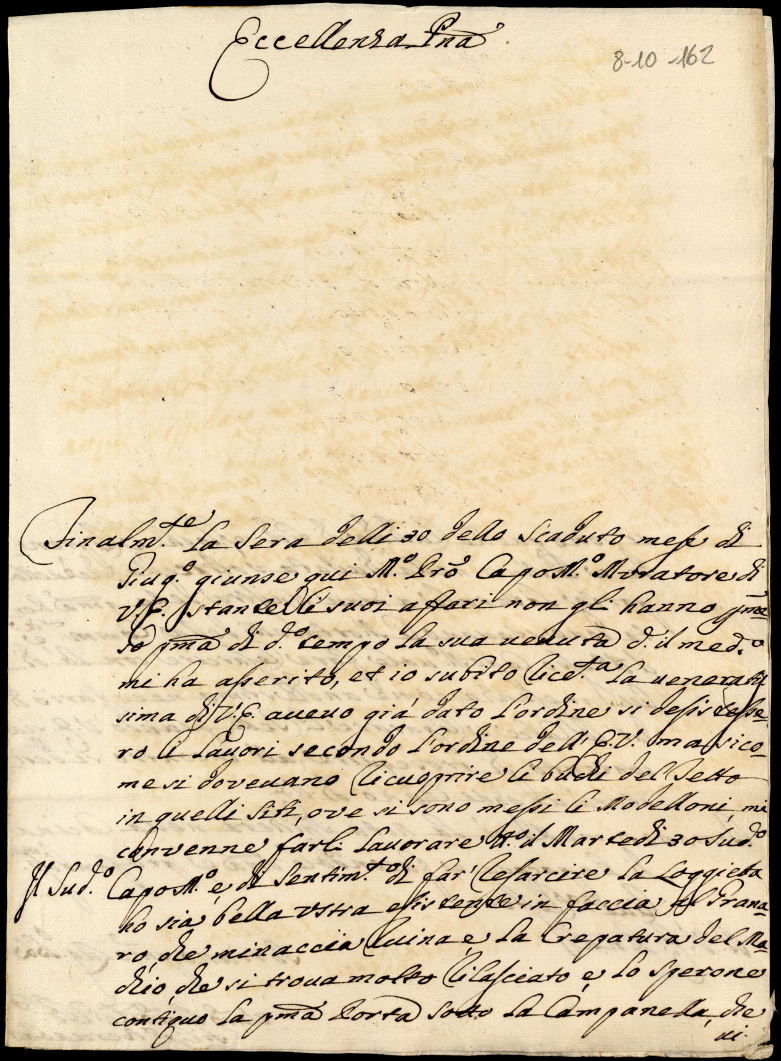 Eccellenza Pna
8-10-162
Finalm.te La Sera delli 30 dello Scaduto mese di
Giug.o giunse qui M.o Capo M.o Muratore di
V.E. stante li suoi affari non gli hanno
so pma di d.o tempo La sua uenuta il med.o
mi ha asserito, et io subito Rice.ta La ueneratis
sima di V.E. aueuo già dato L'ordine si desistesse-
ro li Lauori secondo L'ordine dell'E.V. ma sico-
me si doveuano Ricuoprire li del Tetto
in quelli Siti, oue si sono messi li Modelloni, mi
conuenne farli Lauorare il Martedi 30 Sud.o
Il Sud.o Capo M.o è di Sentim.to di far' Resarcire La Loggietta
ho sia bella Vstra esistente in faccia al Grana-
ro, che minaccia Ruina, e La Crepatura del
che si troua molto Rilasciato è Lo Sperone
contiguo La pma Porta sotto La Campanella, che
ui-